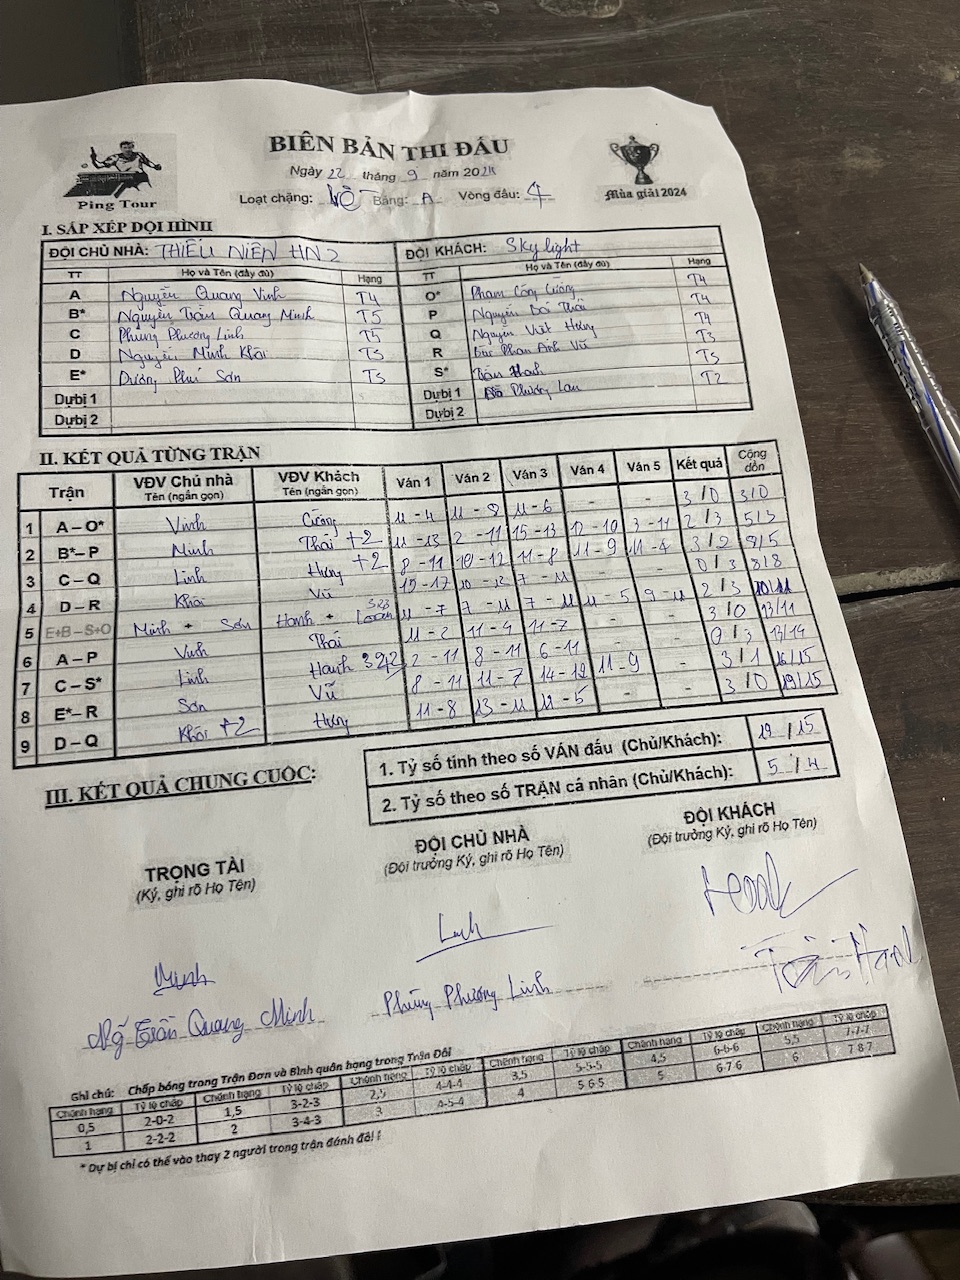 BIÊN BẢN THI ĐẤU
Ngày 22 tháng 9 năm 2024
Ping Tour
Loạt chặng: Bảng: A Vòng đấu: 4
Mùa giải 2024
I. SẮP XẾP ĐỘI HÌNH
ĐỘI CHỦ NHÀ: THIẾU NIÊN HN2 ĐỘI KHÁCH: Skylight
TT Họ và Tên (đầy đủ) Hạng TT Họ và Tên (đầy đủ) Hạng
A Nguyễn Quang Vinh T4 O* Phạm Công Cường T4
B* Nguyễn Trần Quang Minh T5 P Nguyễn Thái T4
C Phùng Phương Linh T5 Q Nguyễn Việt Hưng T4
D Nguyễn Minh Khôi T3 R Phan Anh Vũ T3
E* Dương Phú Sơn T3 S* Trần Hanh
Dự bị 1 Dự bị 1 Đỗ Phương Lan T2
Dự bị 2 Dự bị 2
II. KẾT QUẢ TỪNG TRẬN
Trận VĐV Chủ nhà Tên (ngắn gọn) VĐV Khách Tên (ngắn gọn) Ván 1 Ván 2 Ván 3 Ván 4 Ván 5 Kết quả Cộng dồn
1 A – O* Vinh Cường 11 - 4 11 - 8 11 - 6 - - 3 / 0 3/0
2 B* – P Minh Thái +2 11 - 13 2 - 11 15 - 13 12 - 10 3 - 11 2 / 3 5/3
3 C – Q Linh Hưng +2 8 - 11 10 - 12 11 - 8 11 - 9 11 - 4 3 / 2 8/5
4 D – R Khôi Vũ 15 - 17 10 - 12 7 - 11 - - 0 / 3 8/8
5 E+B – S+O Minh + Sơn Hanh + 323 11 - 7 7 - 11 7 - 11 11 - 5 9 - 11 2 / 3 10/11
6 A – P Vinh Thái 11 - 2 11 - 4 11 - 7 3 / 0 13/11
7 C – S* Linh Hanh 323 2 - 11 8 - 11 6 - 11 - 0 / 3 13/14
8 E* – R Sơn Vũ 8 - 11 11 - 7 14 - 12 11 - 9 - 3 / 1 16/15
9 D – Q Khôi +2 Hưng 11 - 8 13 - 11 11 - 5 - - 3 / 0 19/15
III. KẾT QUẢ CHUNG CUỘC:
1. Tỷ số tính theo số VÁN đấu (Chủ/Khách): 19 / 15
2. Tỷ số theo số TRẬN cá nhân (Chủ/Khách): 5 / 4
TRỌNG TÀI ĐỘI CHỦ NHÀ ĐỘI KHÁCH
(Ký, ghi rõ Họ Tên) (Đội trưởng Ký, ghi rõ Họ Tên) (Đội trưởng Ký, ghi rõ Họ Tên)
Minh Linh
Ng Trần Quang Minh Phùng Phương Linh Trần Hanh
Ghi chú: Chấp bóng trong Trận Đơn và Bình quân hạng trong Trận Đôi
Chênh hạng Tỷ lệ chấp Chênh hạng Tỷ lệ chấp Chênh hạng Tỷ lệ chấp Chênh hạng Tỷ lệ chấp Chênh hạng Tỷ lệ chấp Chênh hạng Tỷ lệ chấp
0,5 2-0-2 1,5 3-2-3 2,5 4-4-4 3,5 5-5-5 4,5 6-6-6 5,5 7-7-7
1 2-2-2 2 3-4-3 3 4-5-4 4 5-6-5 5 6-7-6 6 7 8 7
* Dự bị chỉ có thể vào thay 2 người trong trận đánh đôi !